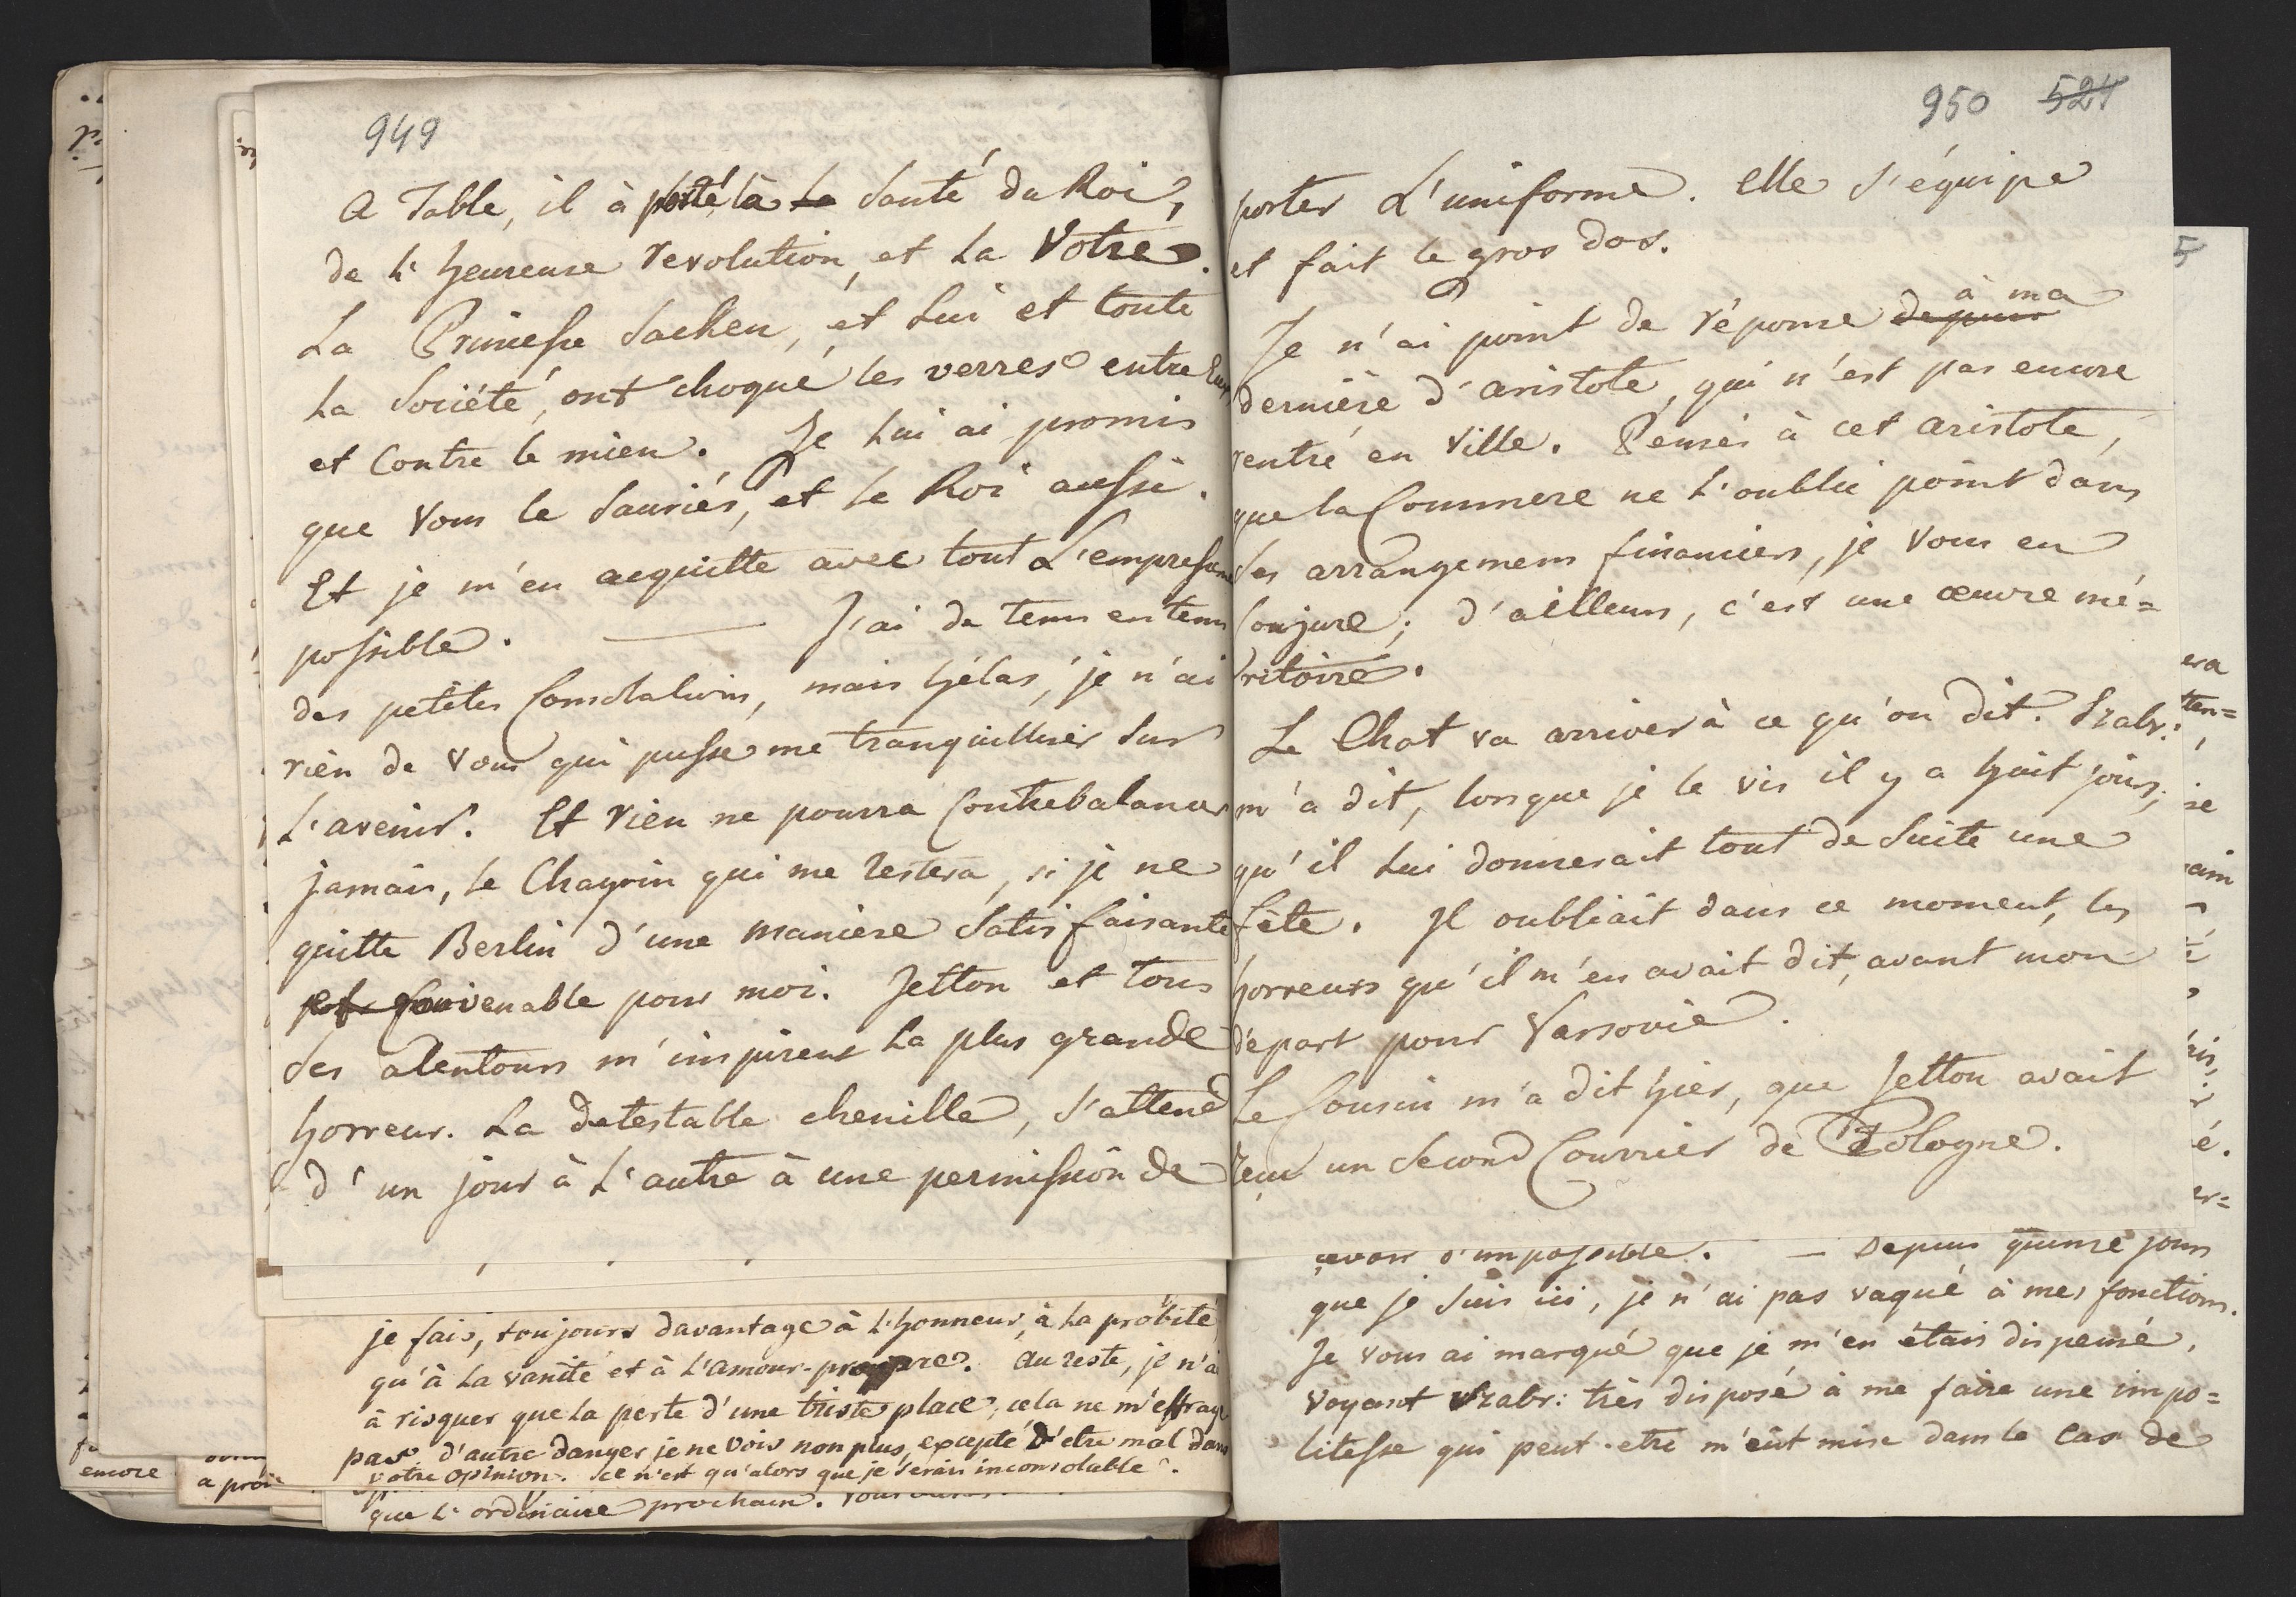 949
A Table, il à porté, là la Santé du Roi,
de L'heureuse revolution, et La Votre.
La Princesse Sacken, et Lui et toute
La Société, ont choqué les verres entre Eux
et Contre le mien. Je Lui ai promis
que Vous le Sauriés, et le Roi aussi.
Et je m'en acquitte avec tout L'empressem
possible. — J'ai de tems en tems
des petites Consolations, mais hélas, je n'ai
rien de Vous qui puisse me tranquilliser Sur
L'avenir. Et rien ne pourra Contrebalancer
jamais, le Chagrin qui me restera, si je ne
quitte Berlin d'une maniere Satisfaisante
et Convenable pour moi. Jetton et tous
Ses alentours m'inspirent La plus grande
horreur. La detestable chenille, s'attend
d'un jour à L'autre à une permission de
je fais, toujours davantage à L'honneur, à La probité
qu'à La vanité et à L'amour-propre. Au reste, je n'ai
à risquer que La perte d'une triste place, cela ne m'effraye
pas d'autre danger, je ne Vois non plus, excepté d'etre mal dans
votre opinion. Ce n'est qu'alors que je Serais inconsolable.
que L'ordinaire prochain.
encore
950 524
porter L'uniforme. Elle S'équipe
et fait le gros dos.
Je n'ai point de réponse depuis à ma
derniére d'aristote, qui n'est pas encore
rentré en Ville. Pensés à cet aristote,
que la Commere ne L'oublie point dans
Ses arrangemens financiers, je Vous en
Conjure; d'ailleurs, c'est une œuvre mé=
ritoire.
Le Chat va arriver à ce qu'on dit. Szabr:
m'a dit, lorsque je le vis il y a huit jours,
qu'il Lui donnerait tout de Suite une
fête. Il oubliait dans ce moment, les
horreurs qu'il m'en avait dit, avant mon
départ pour Varsovie.
Le Cousin m'a dit hier, que Jetton avait
reçu un Second Courrier de Pologne.
cevoir d'impossible. — Depuis quinze jours
que je Suis ici, je n'ai pas vaqué à mes fonctions.
Je Vous ai marqué que je m'en étais dispensé,
Voyant Szabr: très disposé à me faire une impo=
litesse qui peut-etre m'eût mise dans le Cas de